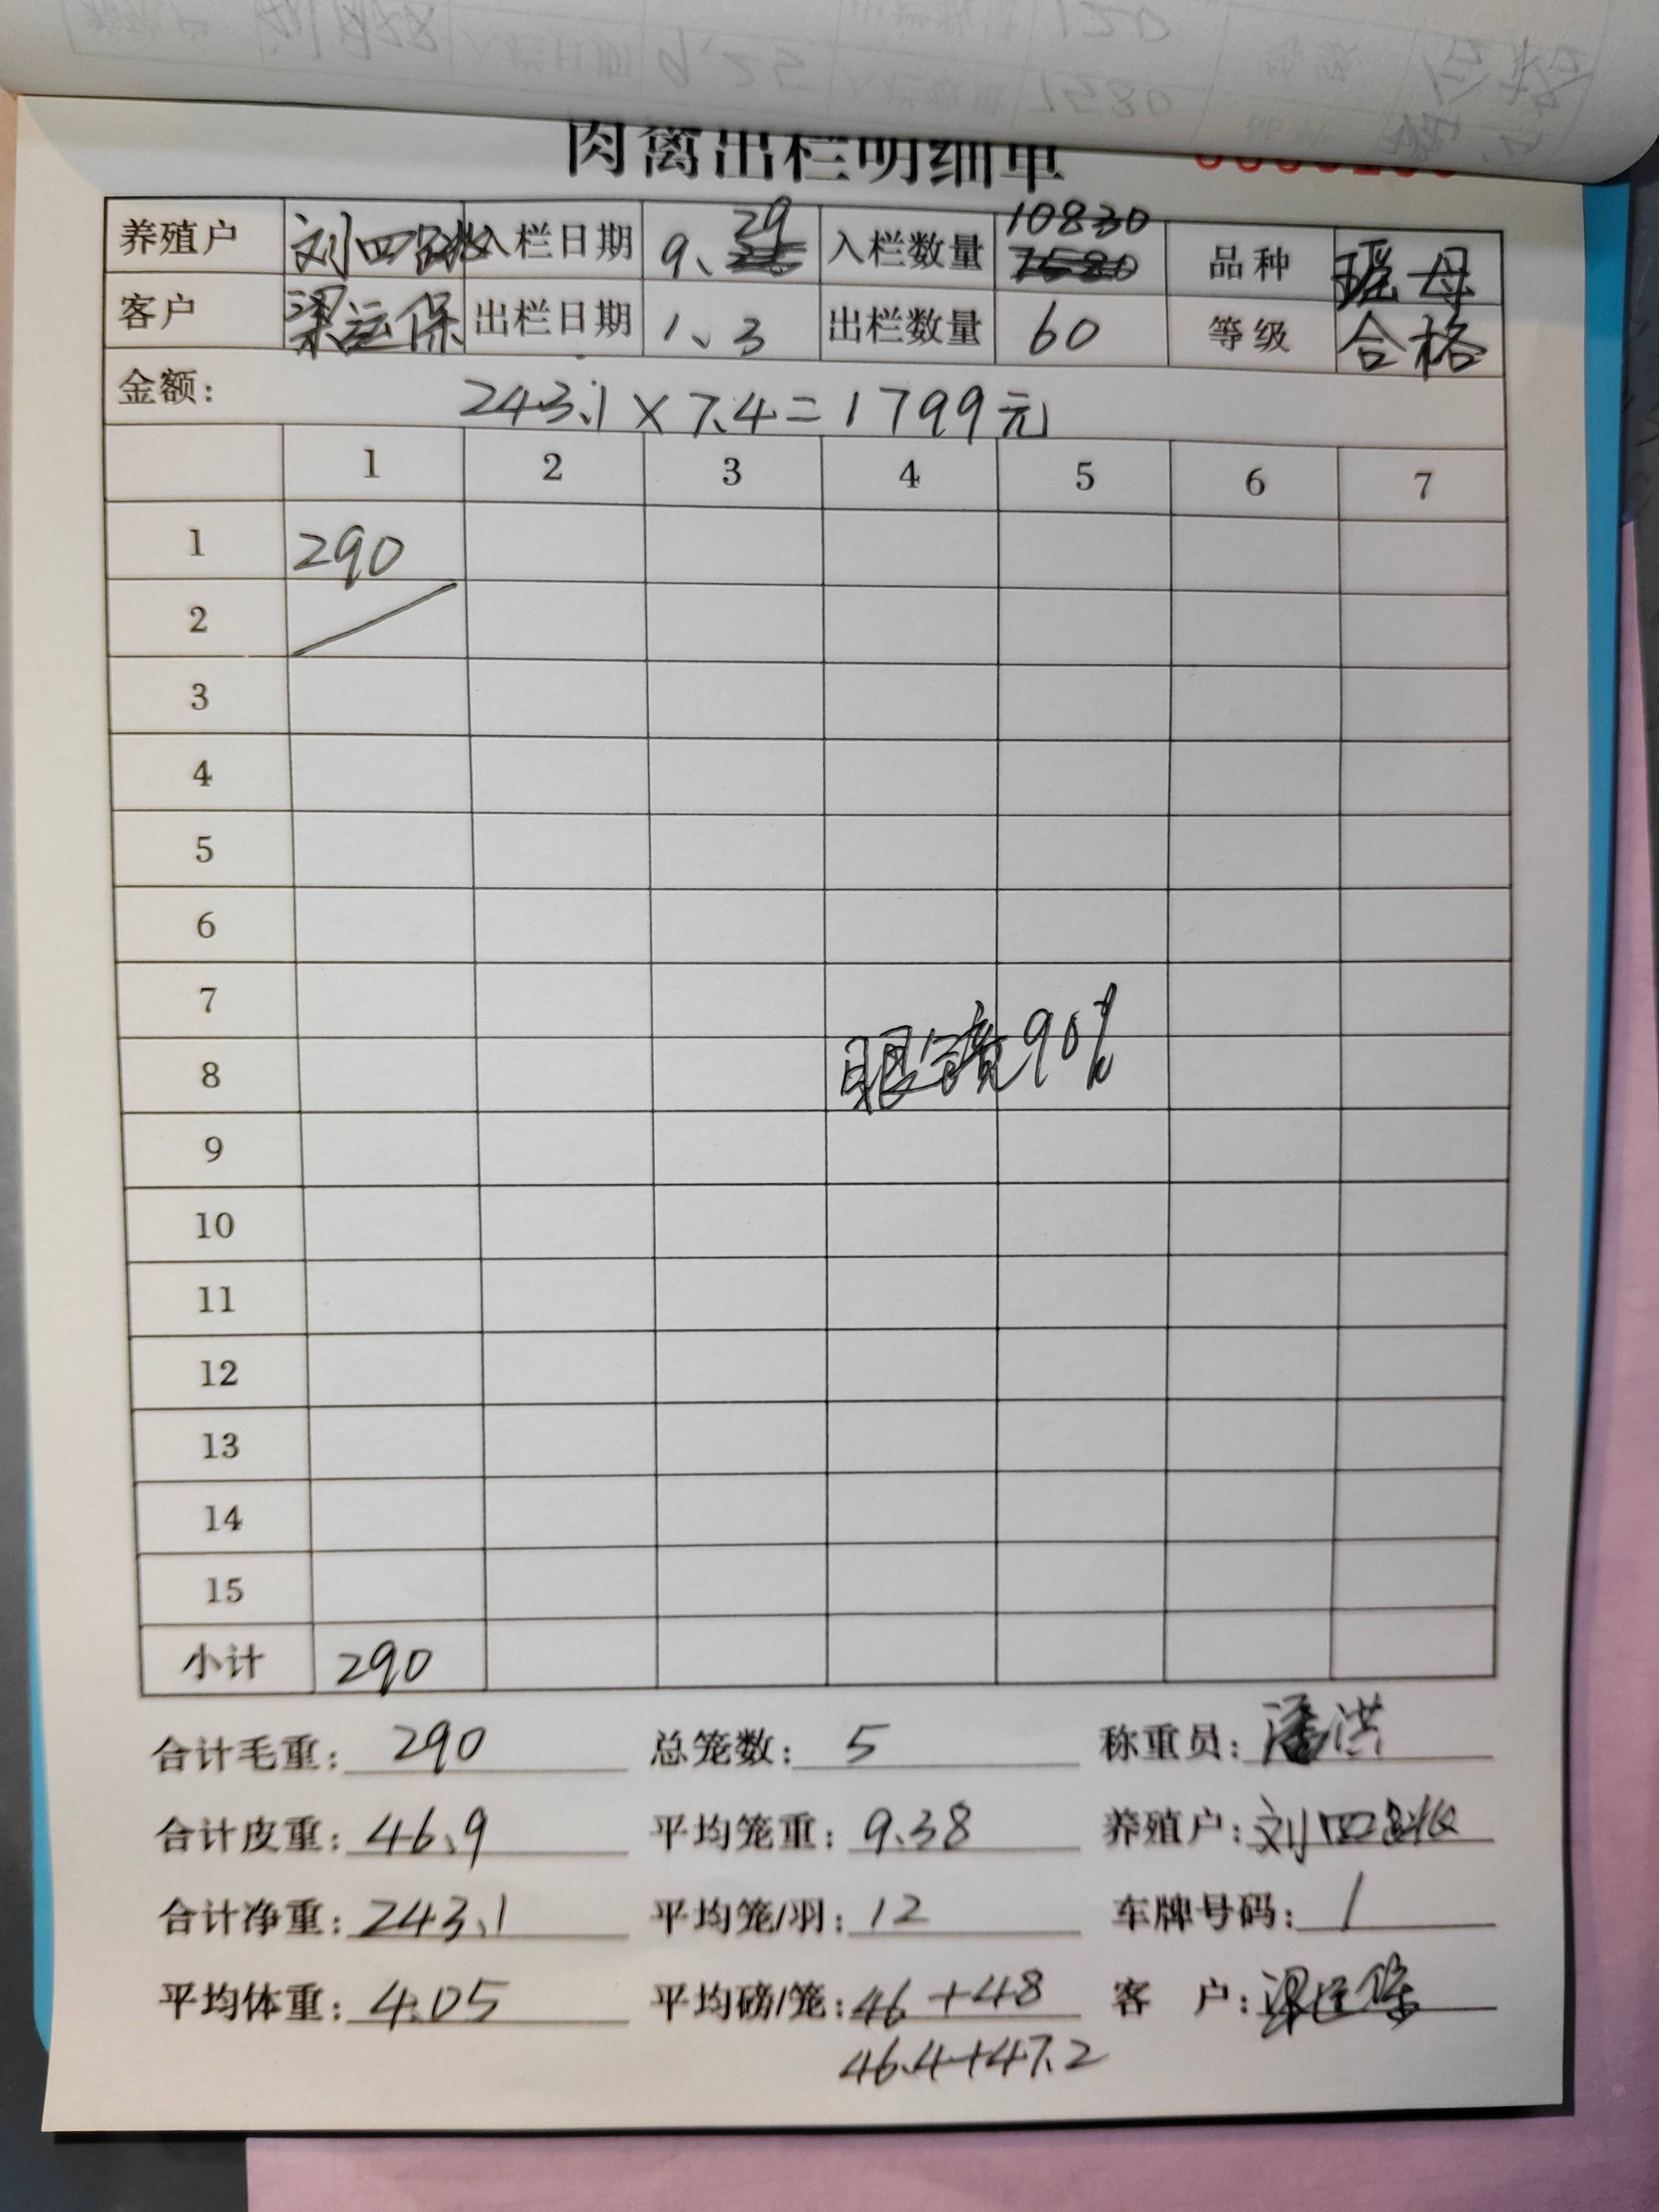 肉禽出栏明细单
养殖户 刘四 入栏日期 9、29 入栏数量 10830 品种 瑶母
客户 梁运保 出栏日期 1、3 出栏数量 60 等级 合格
金额: 243.1×7.4=1799元
1 2 3 4 5 6 7
1 290
2
3
4
5
6
7
8 90%
9
10
11
12
13
14
15
小计 290
合计毛重: 290 总笼数: 5 称重员: 潘洪
合计皮重: 46.9 平均笼重: 9.38 养殖户: 刘四
合计净重: 243.1 平均笼/羽: 12 车牌号码: 1
平均体重: 4.05 平均磅/笼: 46+48 客 户: 梁运保
46.4+47.2